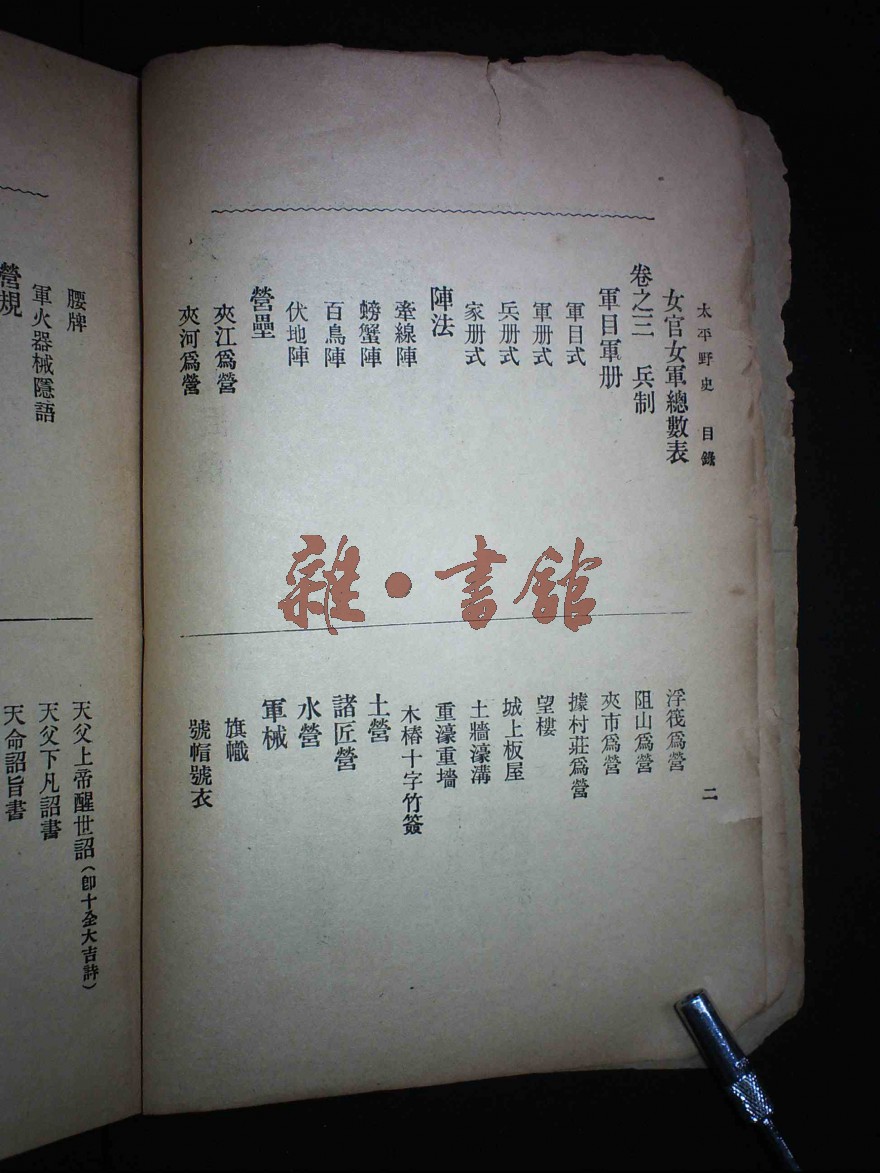 太平野史 目錄
二
女官女軍總數表
卷之三 兵制
軍目軍册
軍目式
軍册式
兵册式
家册式
陣法
牽線陣
螃蟹陣
百鳥陣
伏地陣
營壘
夾江爲營
夾河爲營
浮筏爲營
阻山爲營
夾市爲營
據村莊爲營
望樓
城上板屋
土牆濠溝
重濠重墻
木樁十字竹簽
土營
諸匠營
水營
軍械
旗幟
號帽號衣
腰牌
軍火器械隱語
營規
天父上帝醒世詔(即十全大吉詩)
天父下凡詔書
天命詔旨書
雜·書館